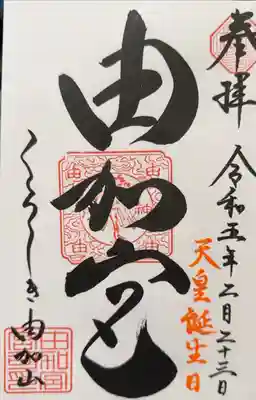 奉拝
令和五年二月二十三日
天皇誕生日
由加宮
くらしき 由加山